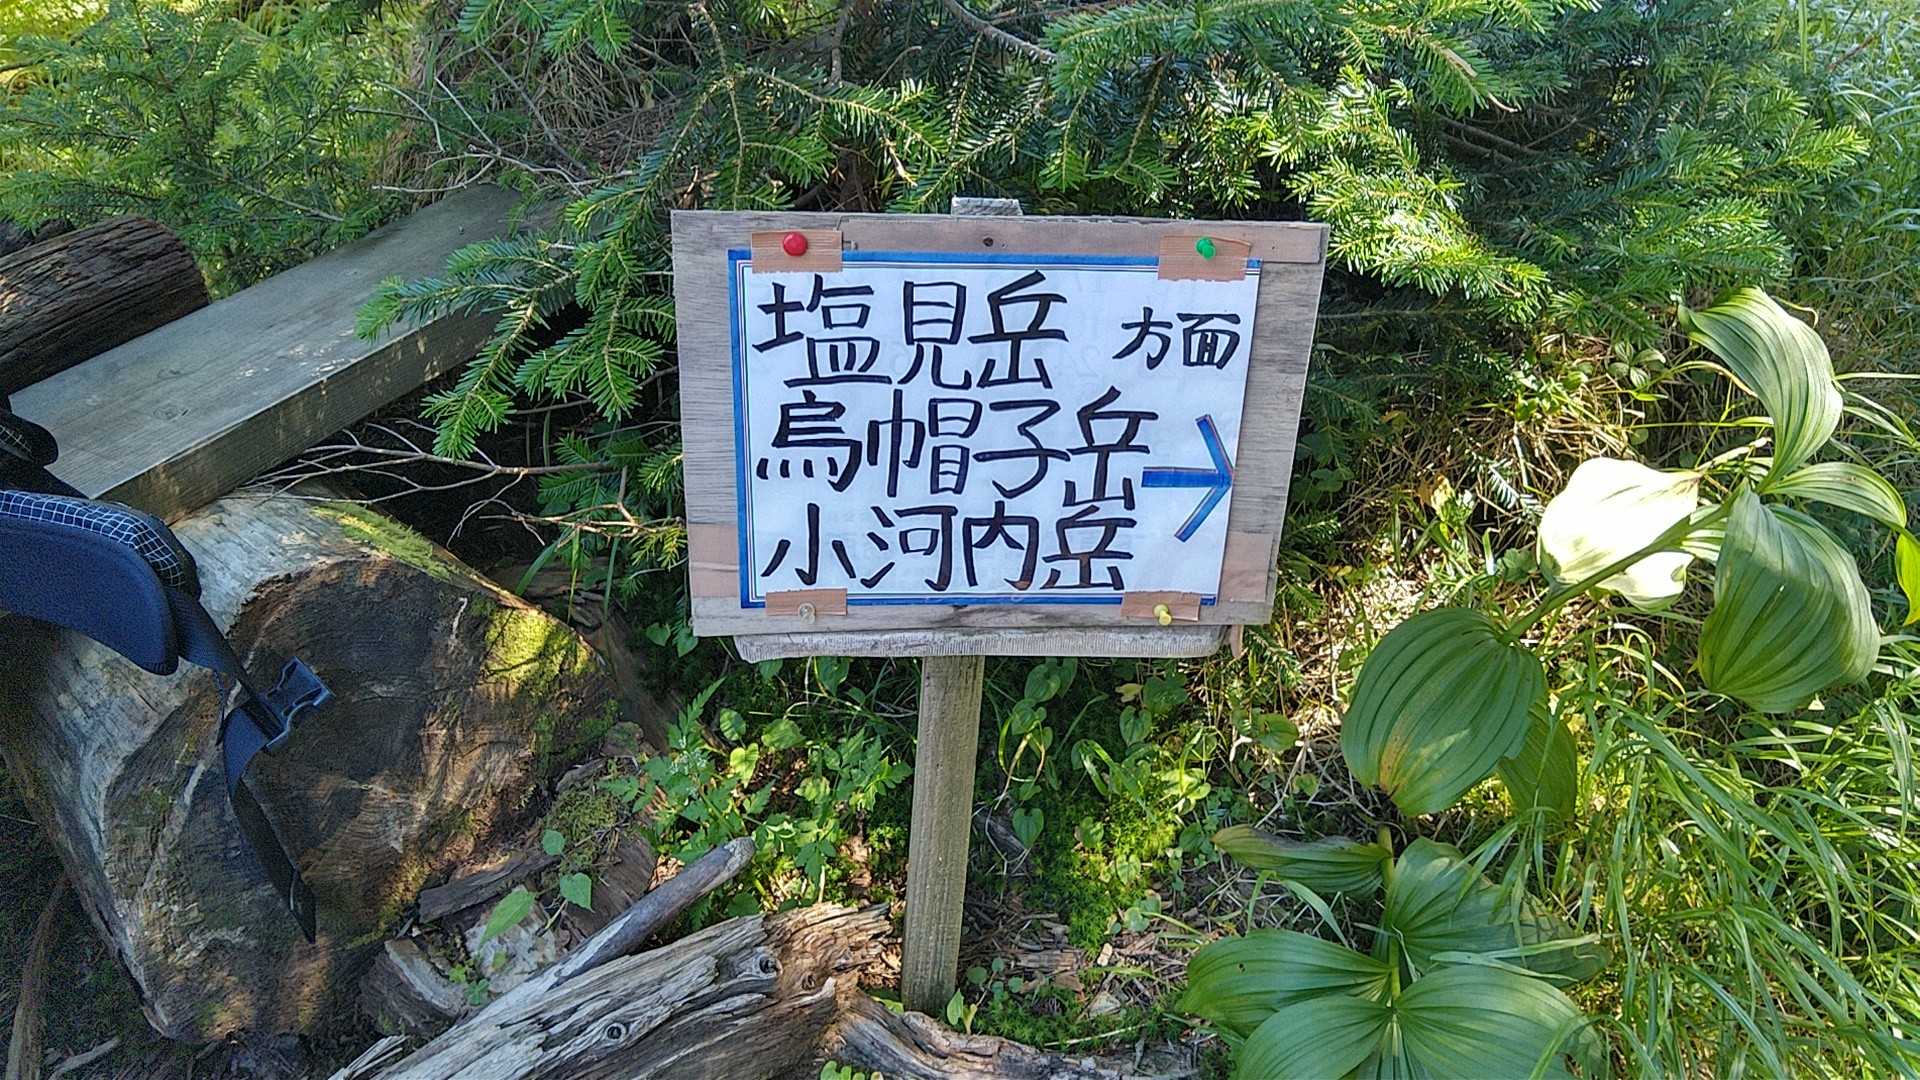 塩見岳 方面
烏帽子岳
小河内岳